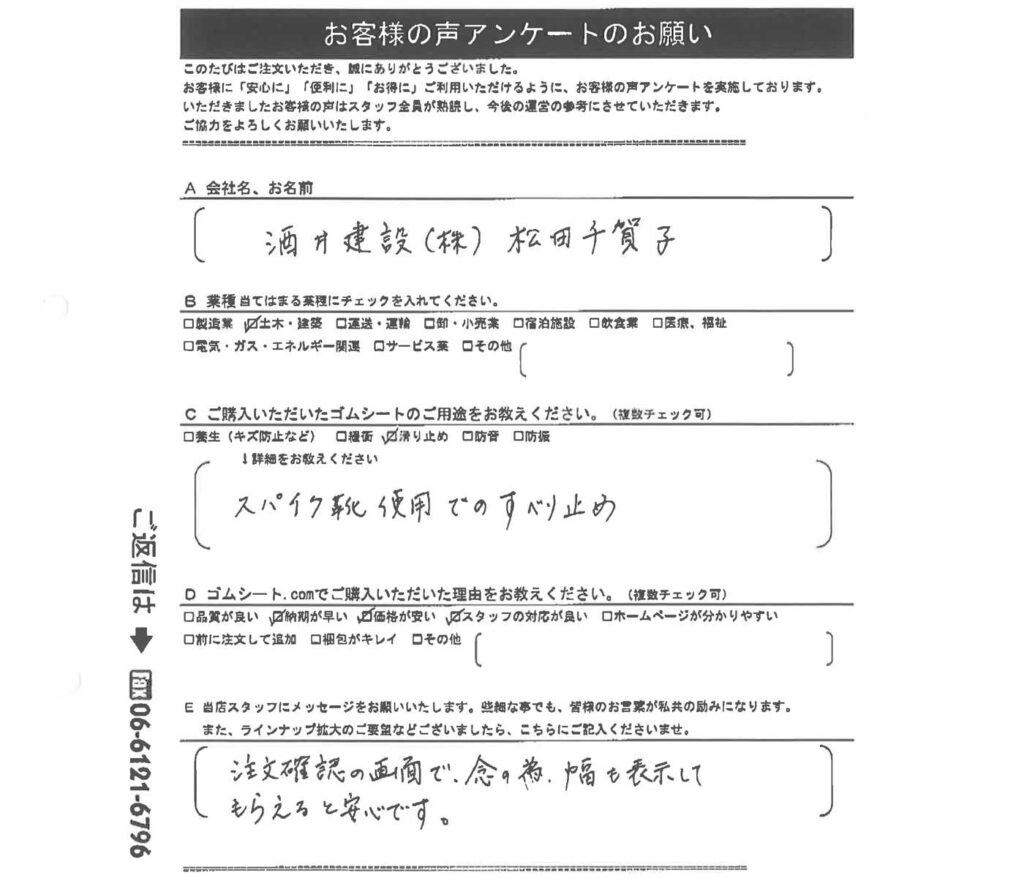 お客様の声アンケートのお願い
このたびはご注文いただき、誠にありがとうございました。
お客様に「安心に」「便利に」「お得に」ご利用いただけるように、お客様の声アンケートを実施しております。
いただきましたお客様の声はスタッフ全員が熟読し、今後の運営の参考にさせていただきます。
ご協力をよろしくお願いいたします。
A 会社名、お名前
酒井建設(株) 松田千賀子
B 業種当てはまる業種にチェックを入れてください。
□製造業 ☑土木・建築 □運送・運輸 □卸・小売業 □宿泊施設 □飲食業 □医療、福祉
□電気・ガス・エネルギー関連 □サービス業 □その他
C ご購入いただいたゴムシートのご用途をお教えください。(複数チェック可)
□養生(キズ防止など) □緩衝 ☑滑り止め □防音 □防振
↓詳細をお教えください
スパイク靴使用でのすべり止め
D ゴムシート.comでご購入いただいた理由をお教えください。(複数チェック可)
□品質が良い ☑納期が早い ☑価格が安い ☑スタッフの対応が良い □ホームページが分かりやすい
□前に注文して追加 □梱包がキレイ □その他
E 当店スタッフにメッセージをお願いいたします。些細な事でも、皆様のお言葉が私共の励みになります。
また、ラインナップ拡大のご要望などございましたら、こちらにご記入くださいませ。
注文確認の画面で、念の為、幅も表示して
もらえると安心です。
ご返信は➡FAX06-6121-6796